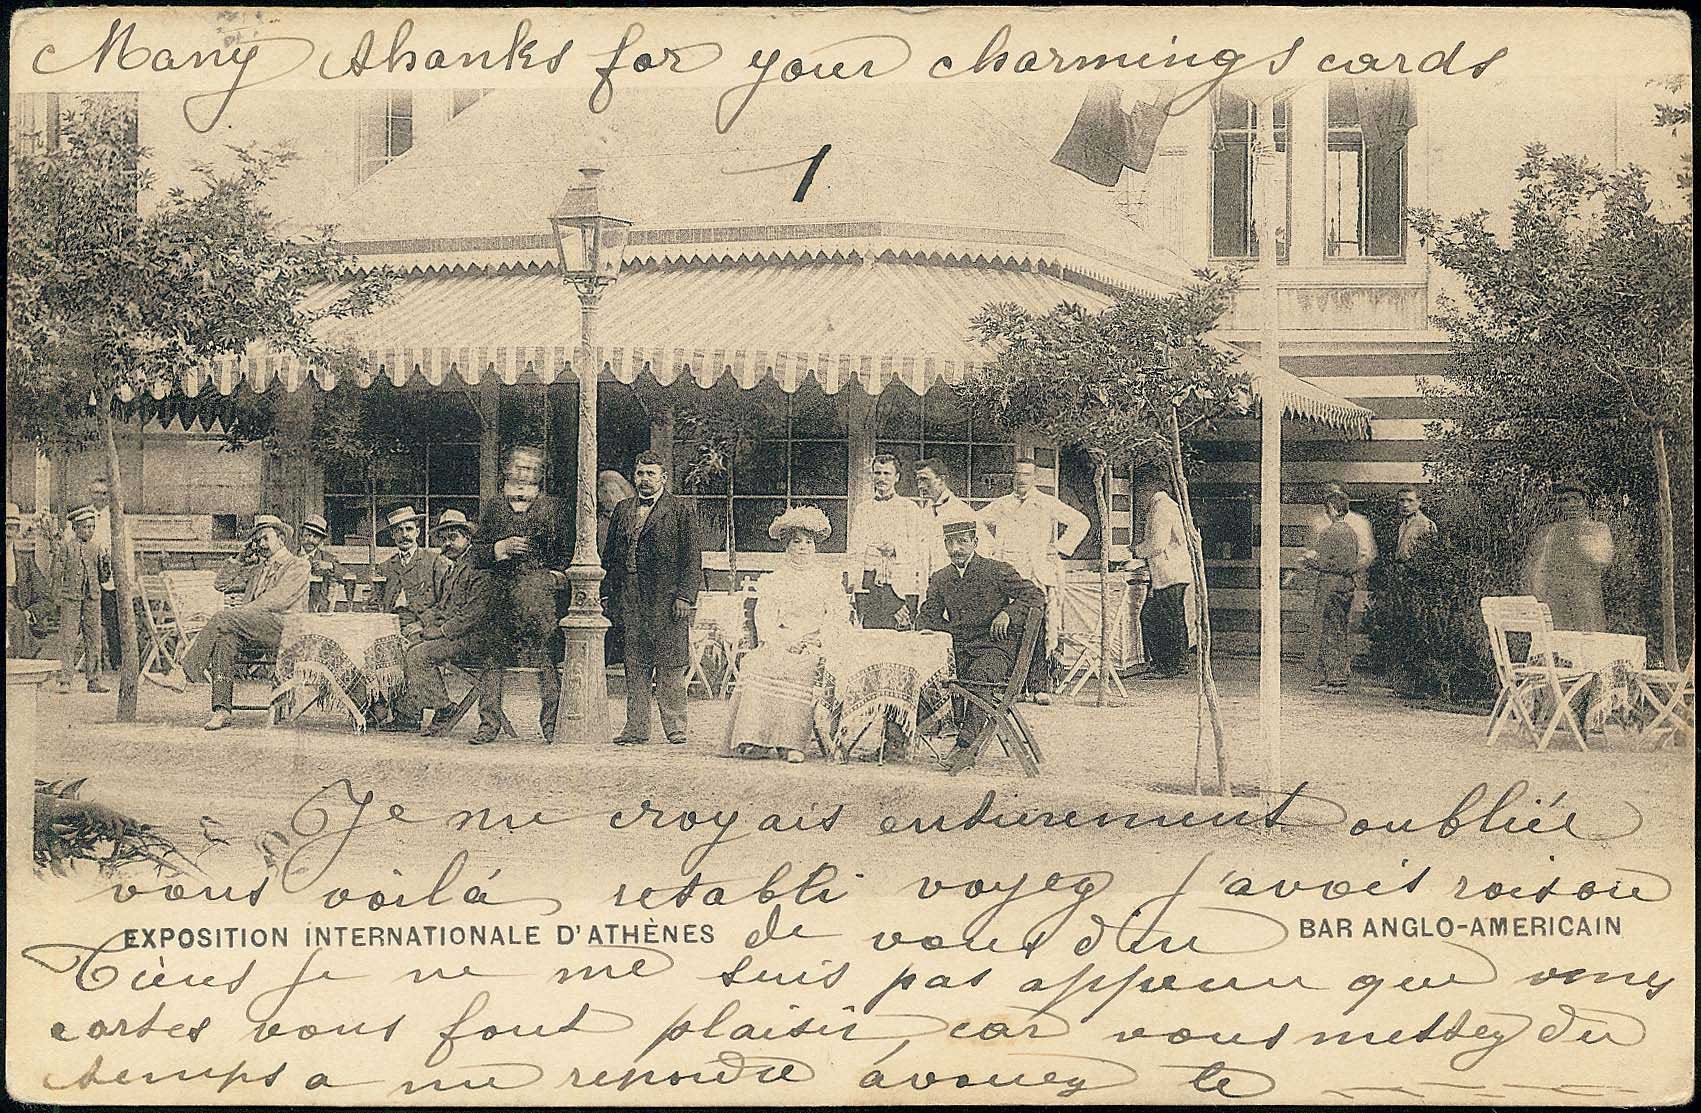 Many thanks for your charmings cards
1
Je me croyais entierement oubliée
vous voilà retabli voyez j'avais raison
EXPOSITION INTERNATIONALE D'ATHÈNES de vous BAR ANGLO-AMERICAIN
Tiens je ne me suis pas que
cartes vous font plaisir, car vous mettez du
temps a me repondre avouez le _ _ _ _